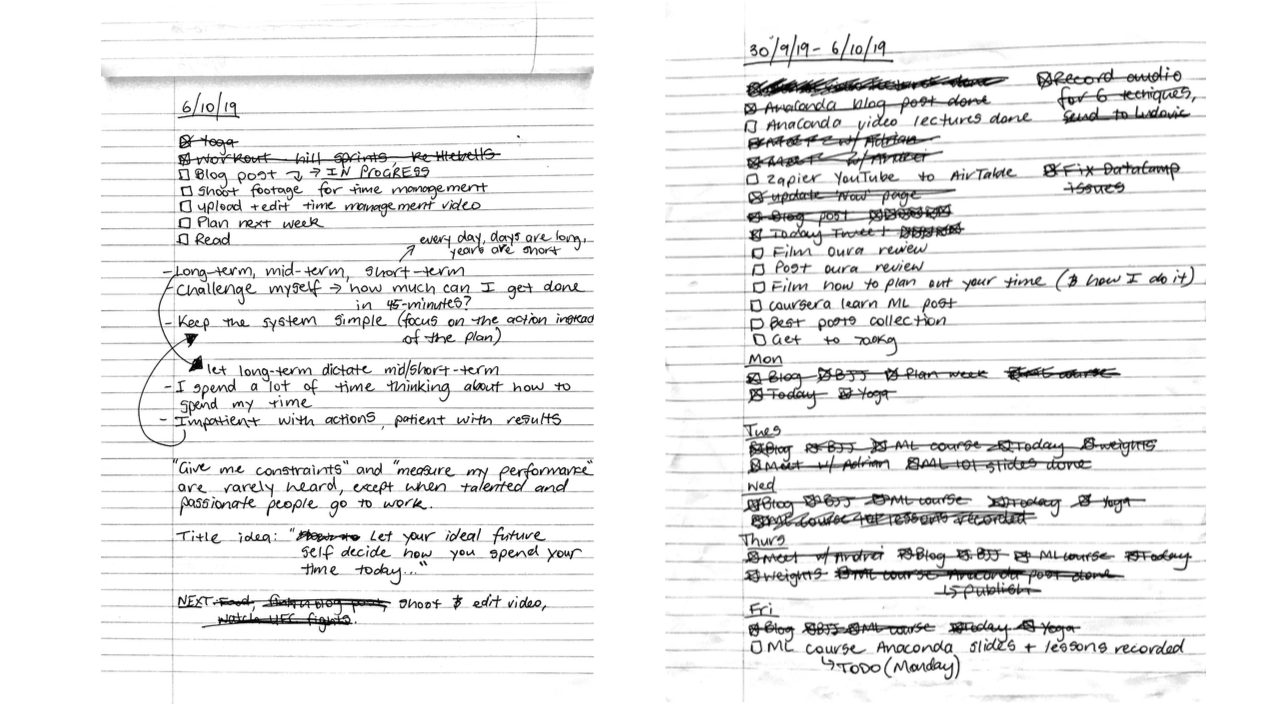 6/10/19
☒ Yoga
☒ Workout hill sprints, kettlebells
☐ Blog post ↴ → IN PROGRESS
☐ Shoot footage for time management
☐ upload + edit time management video
☐ Plan next week
☐ Read
every day, days are long,
years are short
- Long-term, mid-term, short-term
- Challenge myself → how much can I get done
in 45-minutes?
- Keep the system simple (focus on the action instead
of the plan)
let long-term dictate mid/short-term
- I spend a lot of time thinking about how to
spend my time
- Impatient with actions, patient with results
"Give me constraints" and "measure my performance"
are rarely heard, except when talented and
passionate people go to work.
Title idea: " Let your ideal future
self decide how you spend your
time today..."
NEXT: Food, finish blog post, shoot & edit video,
watch UFC fights.
30/9/19 - 6/10/19
☒ Anaconda blog post done
☐ Anaconda video lectures done
☒ w/ Adrian
☒ w/ Andrei
☐ Zapier YouTube to AirTable
☒ update 'Now' page
☒ Blog post ☒☒☒☒☒
☒ Today Tweet ☒☒☒☒☒
☐ Film oura review
☐ Post oura review
☐ Film how to plan out your time (& how I do it)
☐ Coursera learn ML post
☐ Best posts collection
☐ Get to kg
☒ Record audio
for 6 techniques,
send to Ludovic
☒ Fix DataCamp
issues
Mon
☒ Blog ☒ BJJ ☒ Plan week ☒ ML course
☒ Today ☒ Yoga
Tues
☒ Blog ☒ BJJ ☒ ML course ☒ Today ☒ weights
☒ Meet w/ Adrian ☒ ML 101 slides done
Wed
☒ Blog ☒ BJJ ☒ ML course ☒ Today ☒ Yoga
☒ ML course 101 lessons recorded
Thurs
☒ Meet w/ Andrei ☒ Blog ☒ BJJ ☒ ML course ☒ Today
☒ Weights ☒ ML course Anaconda post done
↳ publish
Fri
☒ Blog ☒ BJJ ☒ ML course ☒ Today ☒ Yoga
☐ ML course Anaconda slides + lessons recorded
↳ TODO (Monday)